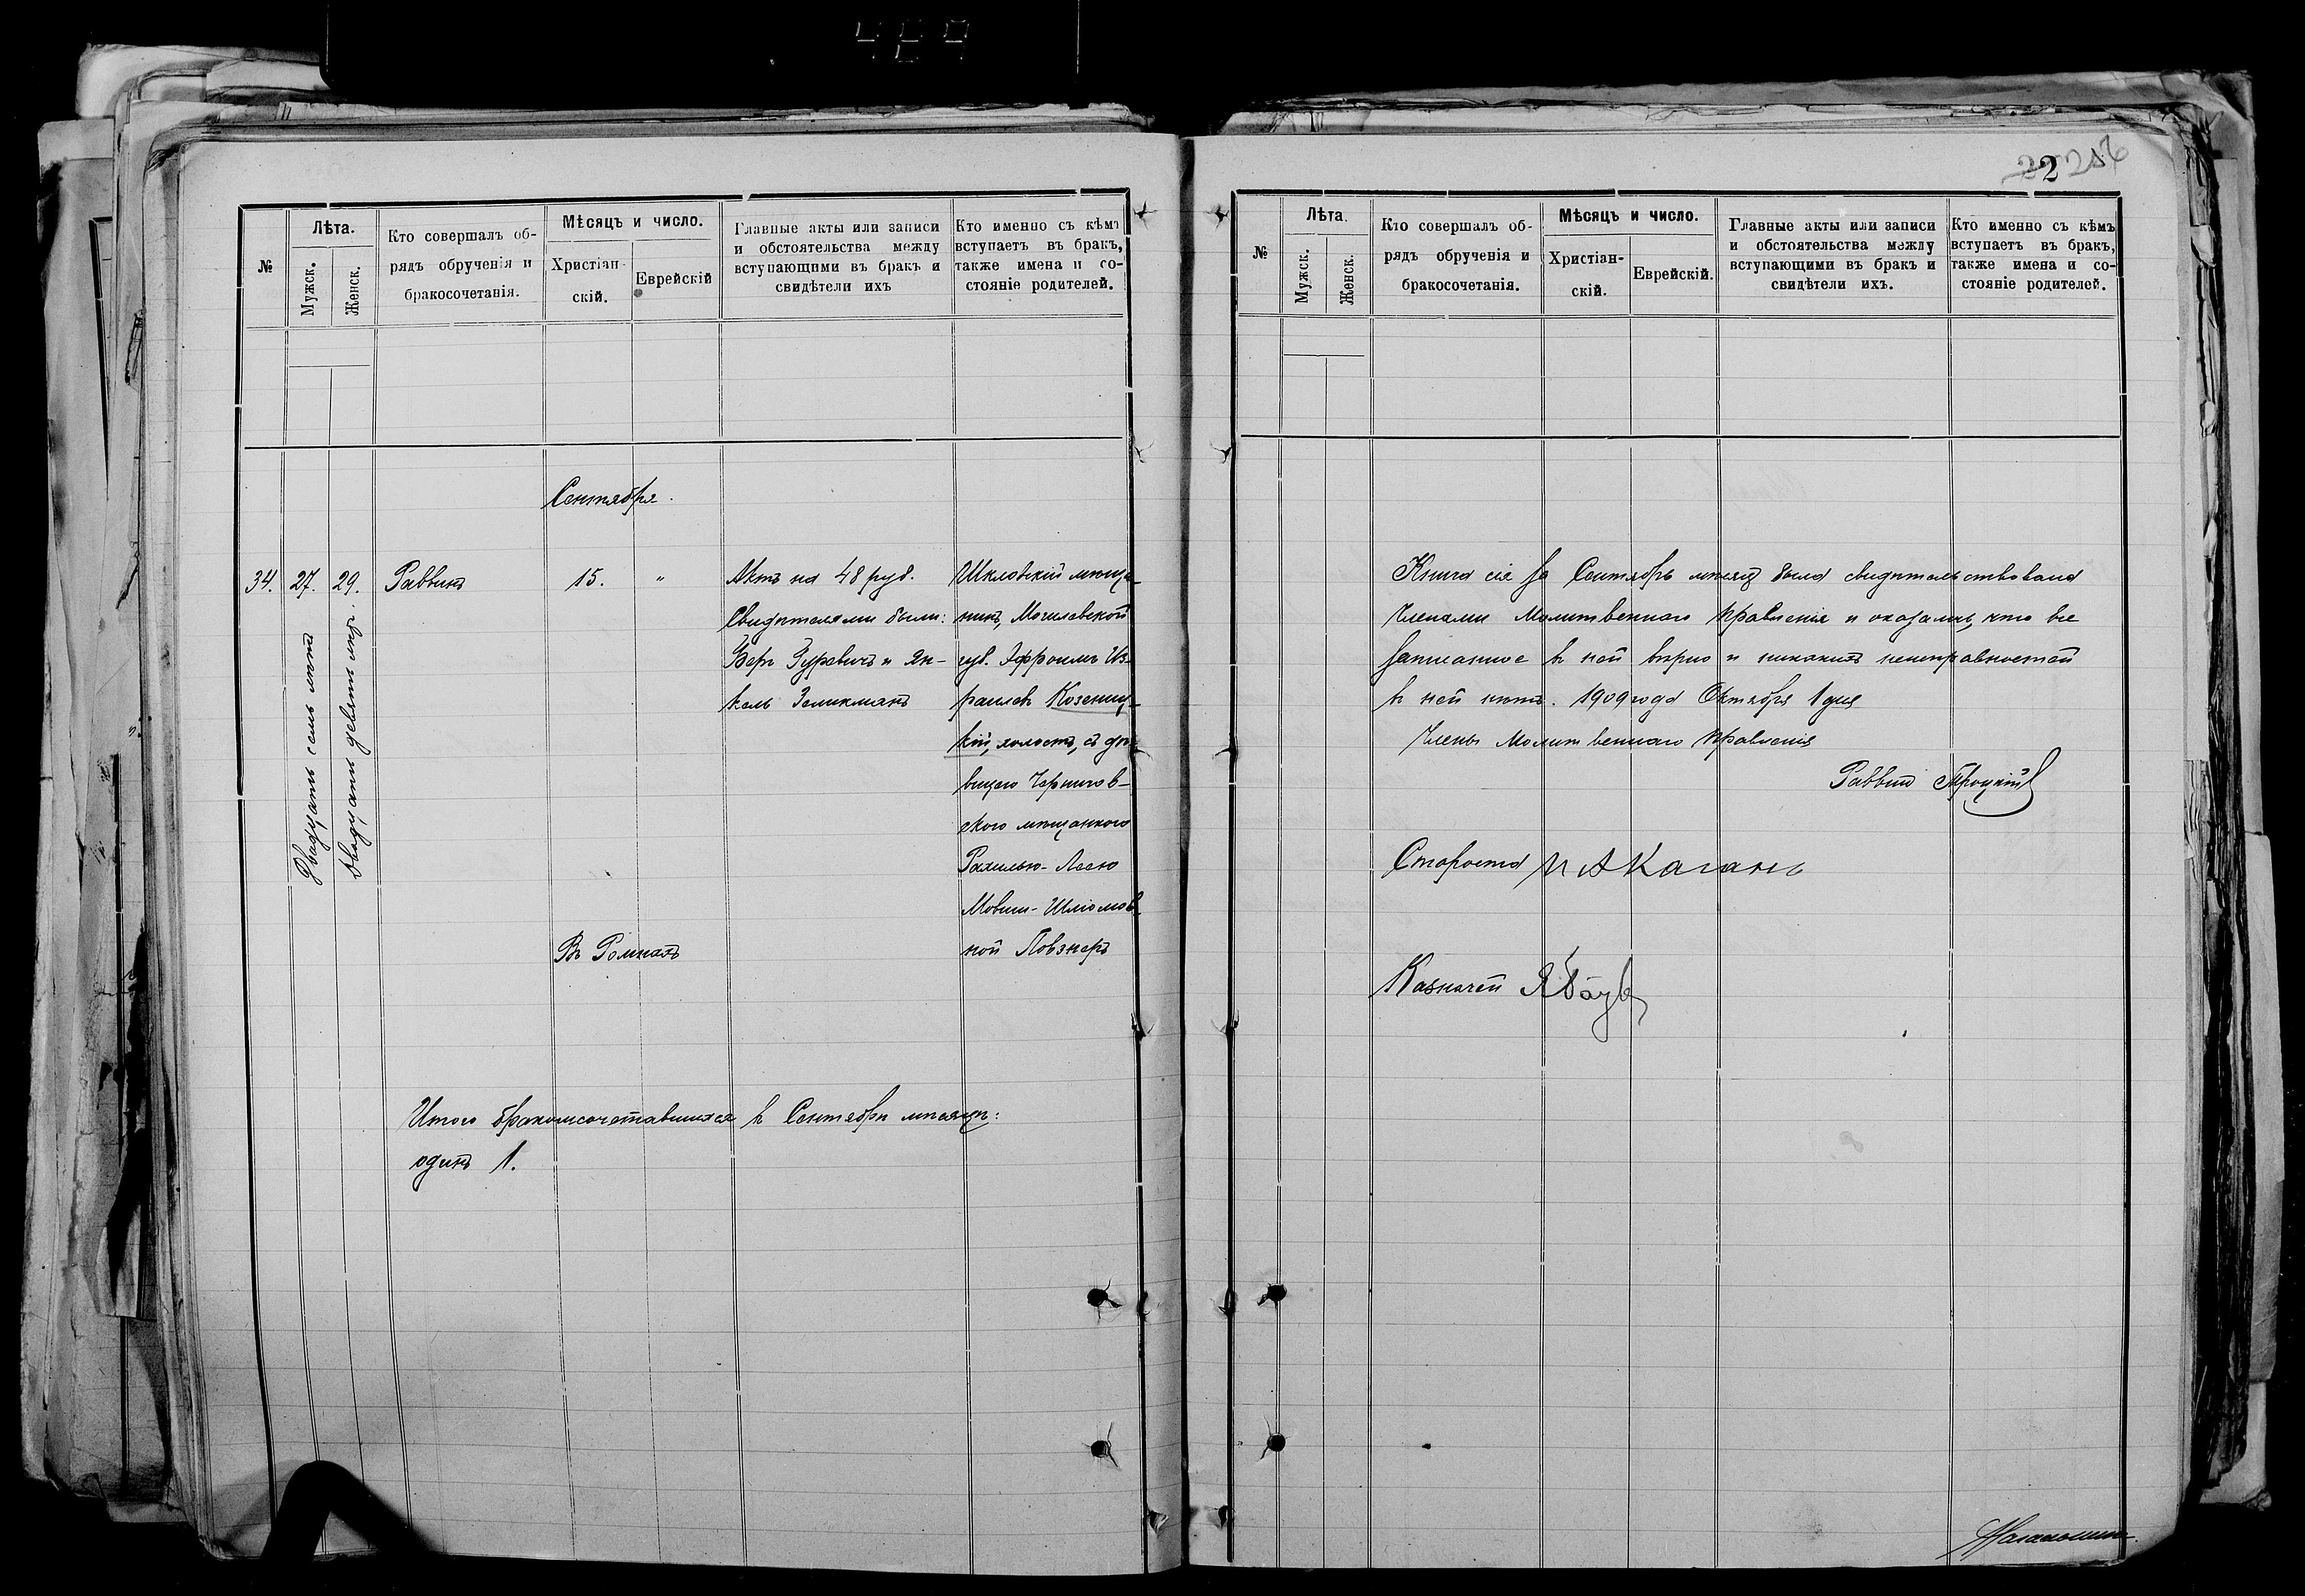 №
Лѣта.
Мужск.
Женск.
Кто совершалъ об-
рядъ обрученія и
бракосочетанія.
Мѣсяцъ и число.
Христіан-
скій.
Еврейскій
Главные акты или записи
и обстоятельства между
вступающими въ бракъ и
свидѣтели ихъ
Кто именно съ кѣмъ
вступаетъ въ бракъ,
также имена и со-
стояніе родителей.
Сентября.
34.
27.
Двадцать семь лѣтъ
29.
Двадцать девять лѣтъ.
Раввинъ
15.
"
Актъ на 48 руб.
Свидѣтелями были:
Беръ Гуревичъ и Ян-
кель Зеликманъ
Шкловскій мѣща-
нинъ, Могилевской
губ. Эфроимъ Из-
раилевъ Козениц-
кій, холостъ, съ дѣ-
вицею Чернигов-
ского мѣщанкою
Рахилью-Леею
Мовши-Шліомов-
ной Повзнеръ
Въ Ромнахъ
Итого бракомсочетавшихся въ Сентябрѣ мѣсяцѣ:
одинъ 1.
22
2
№
Лѣта.
Мужск.
Женск.
Кто совершалъ об-
рядъ обрученія и
бракосочетанія.
Мѣсяцъ и число.
Христіан-
скій.
Еврейскій.
Главные акты или записи
и обстоятельства между
вступающими въ бракъ и
свидѣтели ихъ.
Кто именно съ кѣмъ
вступаетъ въ бракъ,
также имена и со-
стояніе родителей.
Книга сія за Сентябрь мѣсяцъ была свидѣтельствована
Членами Молитвеннаго Правленія и оказалось, что все
записанное въ ней вѣрно и никакихъ неисправностей
въ ней нѣтъ. 1909 года Октября 1 дня
Члены Молитвеннаго Правленія
Раввинъ Троцкій
Староста И А Каганъ
Казначей Я